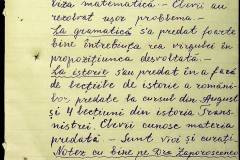 viza matematică - Elevii au
rezolvat ușor problema. -
La gramatică s'a predat foarte
bine întrebuința rea virgulei în
propozițiunea desvoltată. -
La istorie s'au predat în a fară
de lecțiile de istorie a români-
lor predate la cursul din August
și 4 lecțiuni din istoria Trans-
nistriei. Elevii cunosc materia
predată. - Sunt vioi și curați.
Notez cu bine pe Dra Zaporoscenco